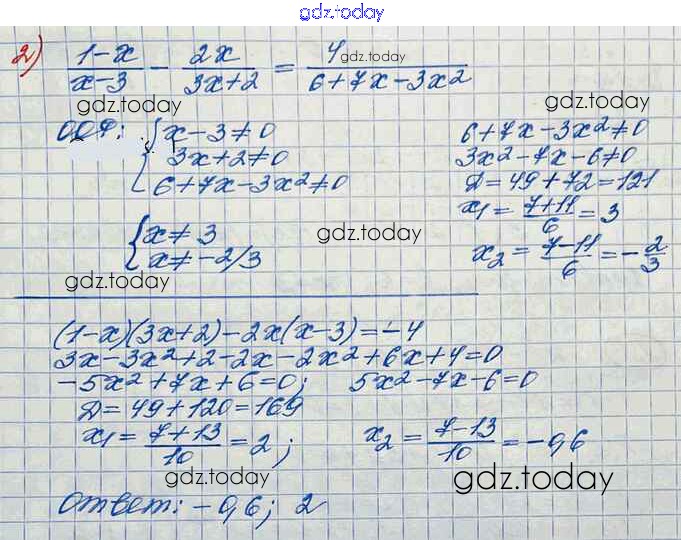 gdz.today
2) (1-x)/(x-3) - 2x/(3x+2) = 4/(6+7x-3x²)
gdz.today
gdz.today gdz.today
x-3≠0 6+7x-3x²≠0
3x+2≠0 3x²-7x-6≠0
6+7x-3x²≠0 D=49+72=121
x₁=(7+11)/6=3
x≠3 gdz.today
x≠-2/3 x₂=(7-11)/6=-2/3
gdz.today
(1-x)(3x+2)-2x(x-3)=-4
3x-3x²+2-2x-2x²+6x+4=0
-5x²+7x+6=0; 5x²-7x-6=0
D=49+120=169
x₁=(7+13)/10=2; x₂=(7-13)/10=-0,6
gdz.today gdz.today
Ответ: -0,6; 2